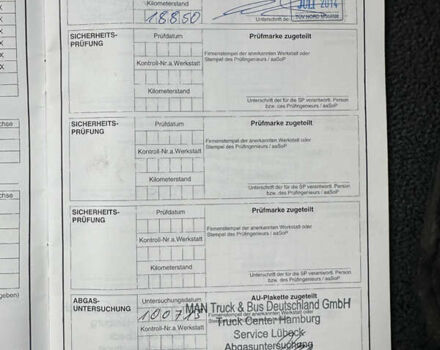 Kilometerstand
18850
JULI 2014
Unterschrift de
TÜV NORD Mobilität
SICHERHEITS-
PRÜFUNG
Prüfdatum
Prüfmarke zugeteilt
Firmenstempel der anerkannten Werkstatt oder
Stempel des Prüfingenieurs / aaSoP
Kontroll-Nr.a.Werkstatt
Kilometerstand
Unterschrift der für die SP verantwortl. Person
bzw. des Prüfingenieurs / aaSoP
SICHERHEITS-
PRÜFUNG
Prüfdatum
Prüfmarke zugeteilt
Firmenstempel der anerkannten Werkstatt oder
Stempel des Prüfingenieurs / aaSoP
Kontroll-Nr.a.Werkstatt
Kilometerstand
Unterschrift der für die SP verantwortl. Person
bzw. des Prüfingenieurs / aaSoP
SICHERHEITS-
PRÜFUNG
Prüfdatum
Prüfmarke zugeteilt
Firmenstempel der anerkannten Werkstatt oder
Stempel des Prüfingenieurs / aaSoP
Kontroll-Nr.a.Werkstatt
Kilometerstand
Unterschrift der für die SP verantwortl. Person
bzw. des Prüfingenieurs / aaSoP
ABGAS-
UNTERSUCHUNG
Untersuchungsdatum
100713
Kontroll-Nr.a.Werkstatt
AU-Plakette zugeteilt
MAN Truck & Bus Deutschland GmbH
Truck Center Hamburg
Service Lübeck
Abgasuntersuchung